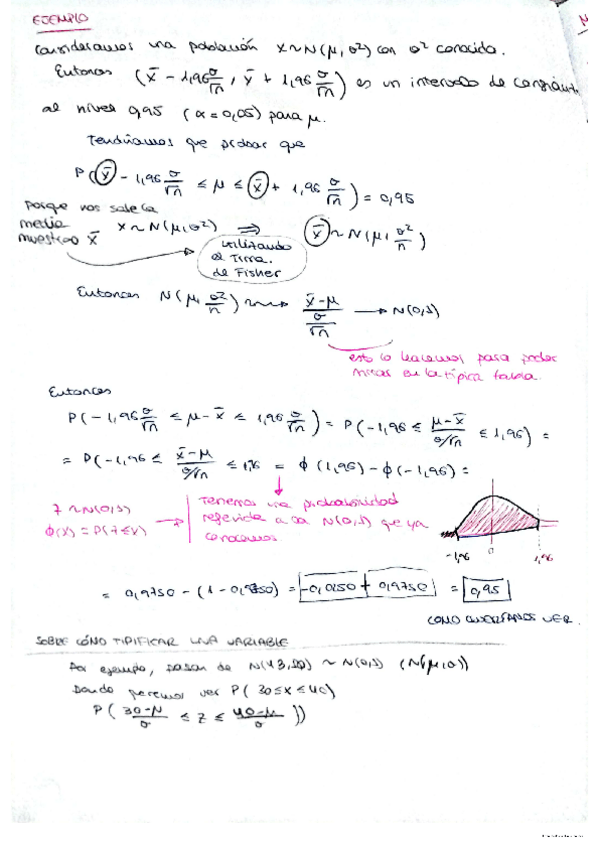 EJEMPLO
Consideramos una población x~N(μ, σ²) con σ² conocida.
Entonces (x̄ - 1,96 σ/√n, x̄ + 1,96 σ/√n) es un intervalo de confianza
al nivel 0,95 (α = 0,05) para μ.
Tendríamos que probar que
P(x̄ - 1,96 σ/√n ≤ μ ≤ x̄ + 1,96 σ/√n) = 0,95
porque nos sale la
media
muestral x̄
x~N(μ,σ²) ⇒ x̄ ~ N(μ, σ²/n)
utilizando
el Tma.
de Fisher
Entonces N(μ, σ²/n) → (x̄-μ)/(σ/√n) → N(0,1)
esto lo hacemos para poder
mirar en la típica tabla.
Entonces
P(-1,96 σ/√n ≤ μ-x̄ ≤ 1,96 σ/√n) = P(-1,96 ≤ (μ-x̄)/(σ/√n) ≤ 1,96) =
= P(-1,96 ≤ (x̄-μ)/(σ/√n) ≤ 1,96 = ϕ(1,96) - ϕ(-1,96) =
Z ~N(0,1)
ϕ(x) = P(Z≤x)
Tenemos una probabilidad
referida a la N(0,1) que ya
conocemos
-1,96 0 1,96
= 0,9750 - (1 - 0,9750) = -0,0250 + 0,9750 = 0,95
COMO QUERÍAMOS VER.
SOBRE CÓMO TIPIFICAR UNA VARIABLE
Por ejemplo, pasar de N(43,10) ~ N(0,1) (N(μ,σ))
Donde queremos ver P(30≤x≤40)
P((30-μ)/σ ≤ z ≤ (40-μ)/σ))